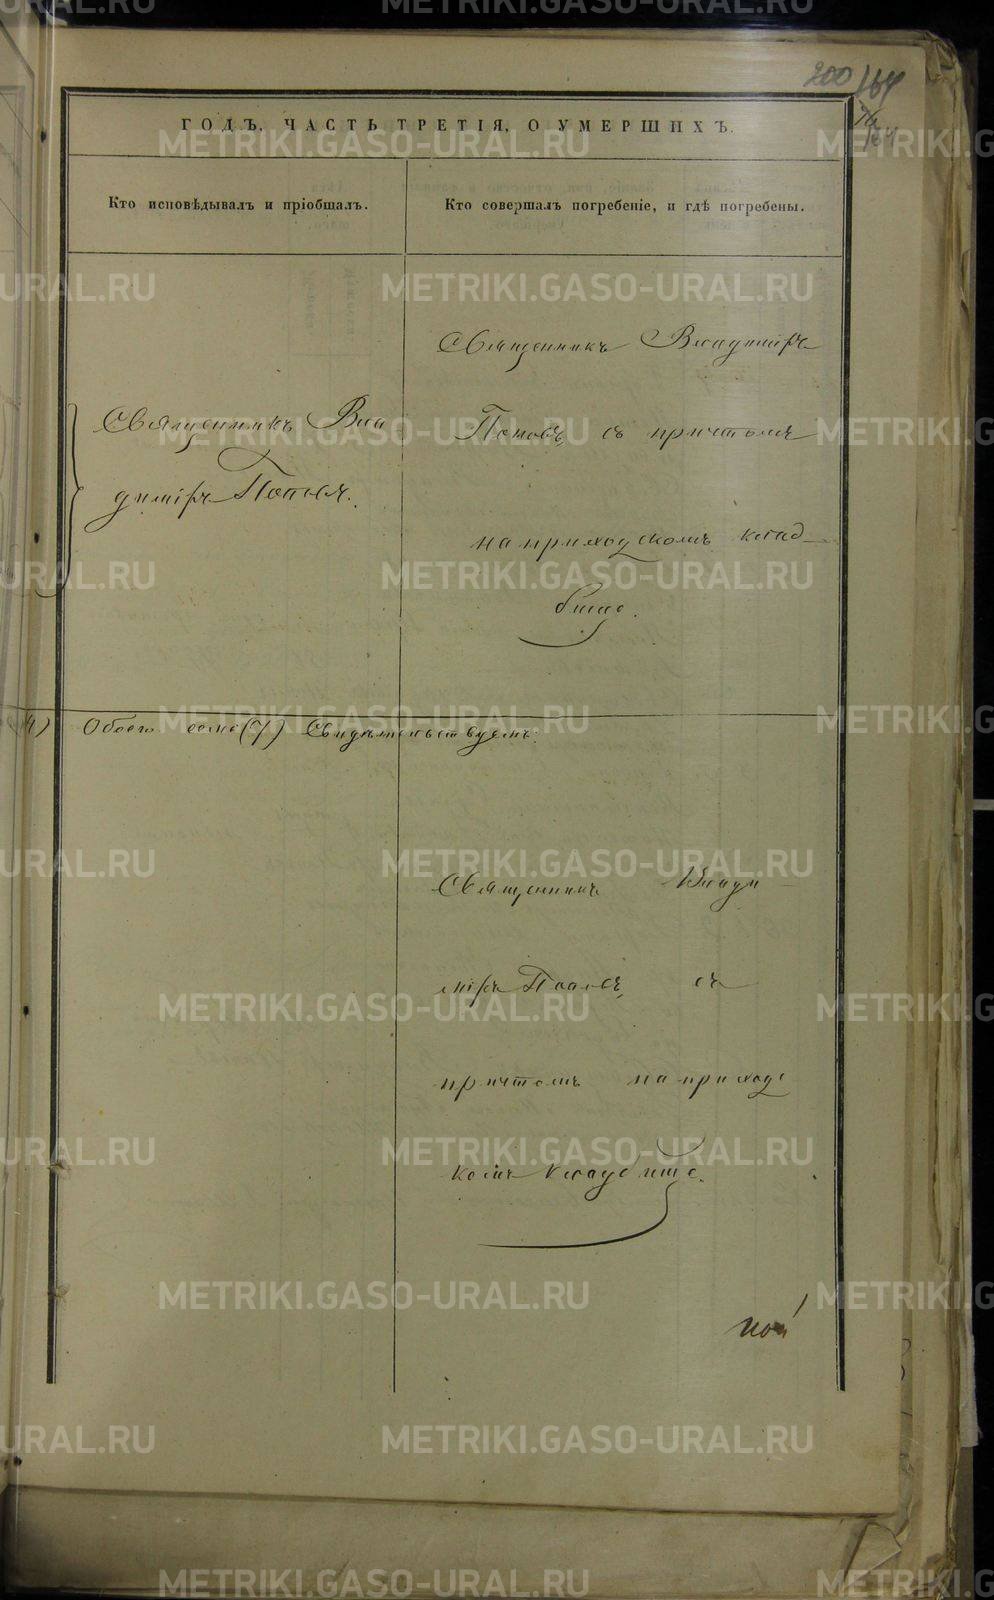 200 164
ГОДЪ, ЧАСТЬ ТРЕТІЯ, О УМЕРШИХЪ.
Кто исповѣдывалъ и пріобщалъ.
Кто совершалъ погребеніе, и гдѣ погребены.
Священникъ Вла
димірь Поповъ.
Священникъ Владиміръ
Поповъ съ причтомъ
на приходскомъ клад-
бище.
4) Обоего пола (7) Свидѣтельствуемъ:
Священникъ Влади-
міръ Поповъ съ
причтомъ на приходс
комъ кладбище.
METRIKI.GASO-URAL.RU